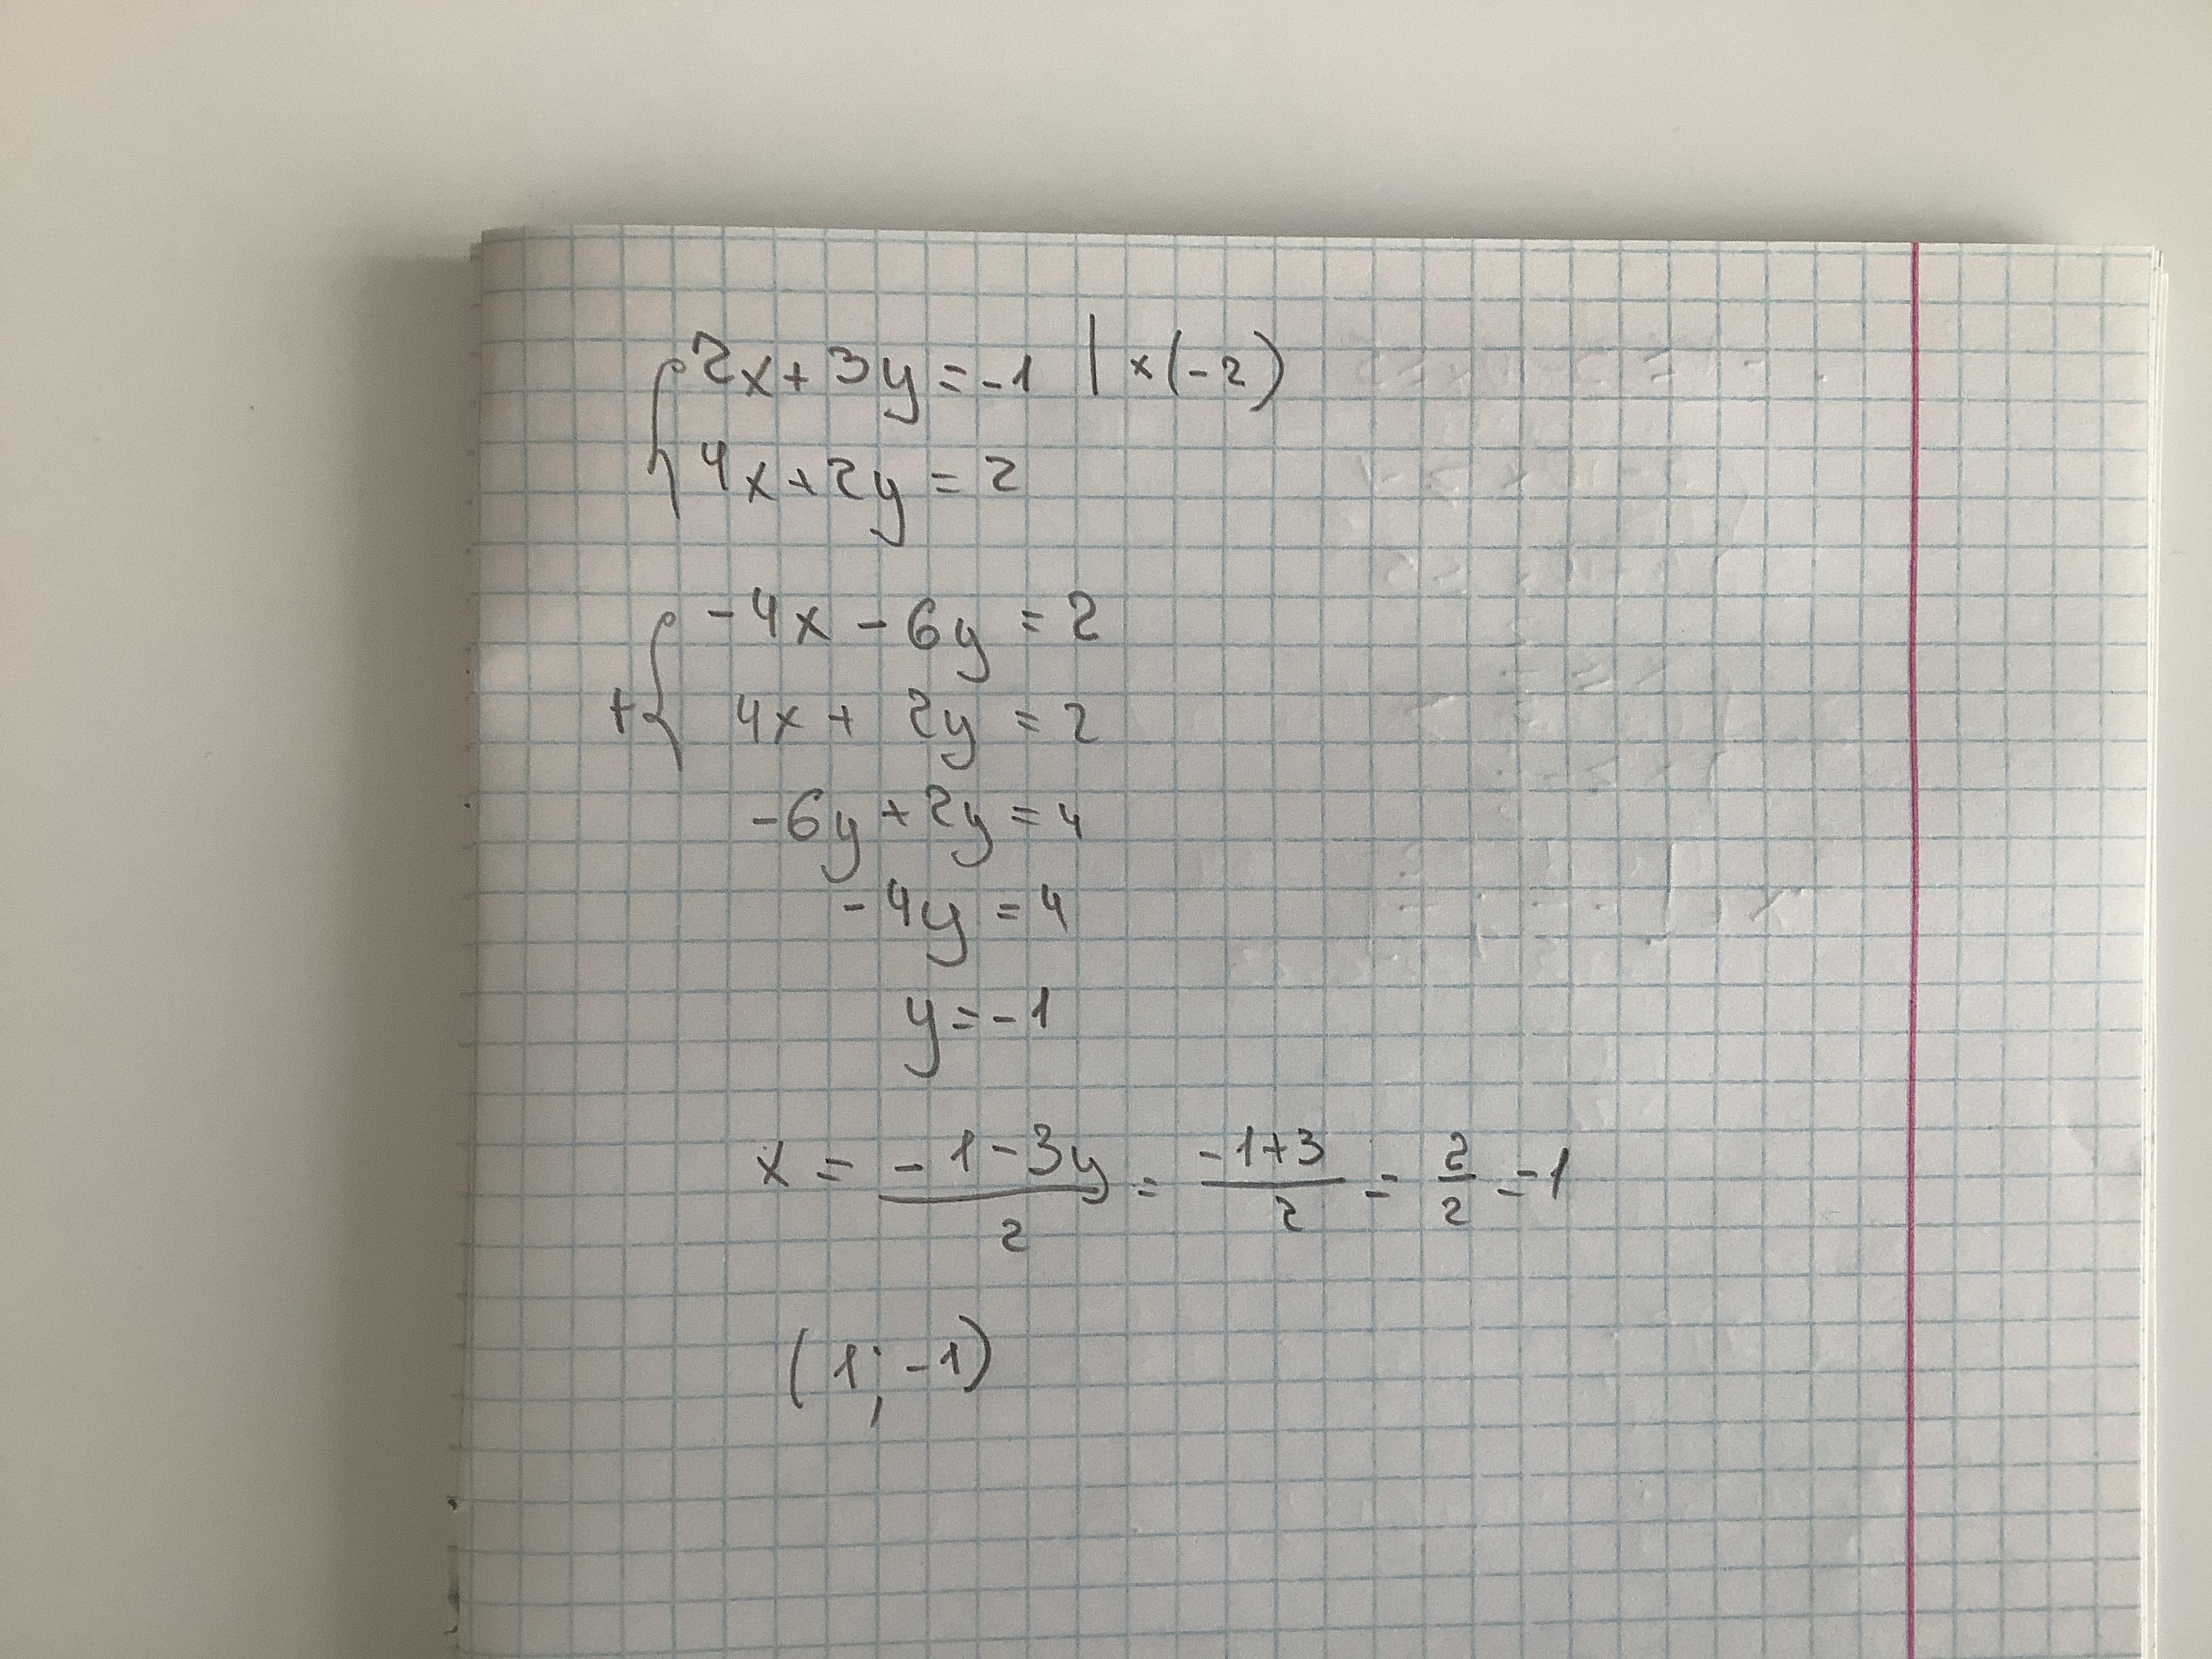 { 2x + 3y = -1 | x (-2)
4x + 2y = 2
{ -4x - 6y = 2
+ 4x + 2y = 2
-6y + 2y = 4
-4y = 4
y = -1
x = (-1-3y)/2 = (-1+3)/2 = 2/2 = 1
(1; -1)